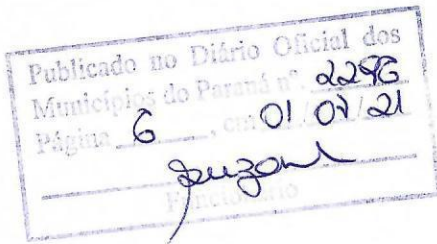 Publicado no Diário Oficial dos
Municípios do Paraná nº. 2296
Página 6, em 01/07/21
Funcionário